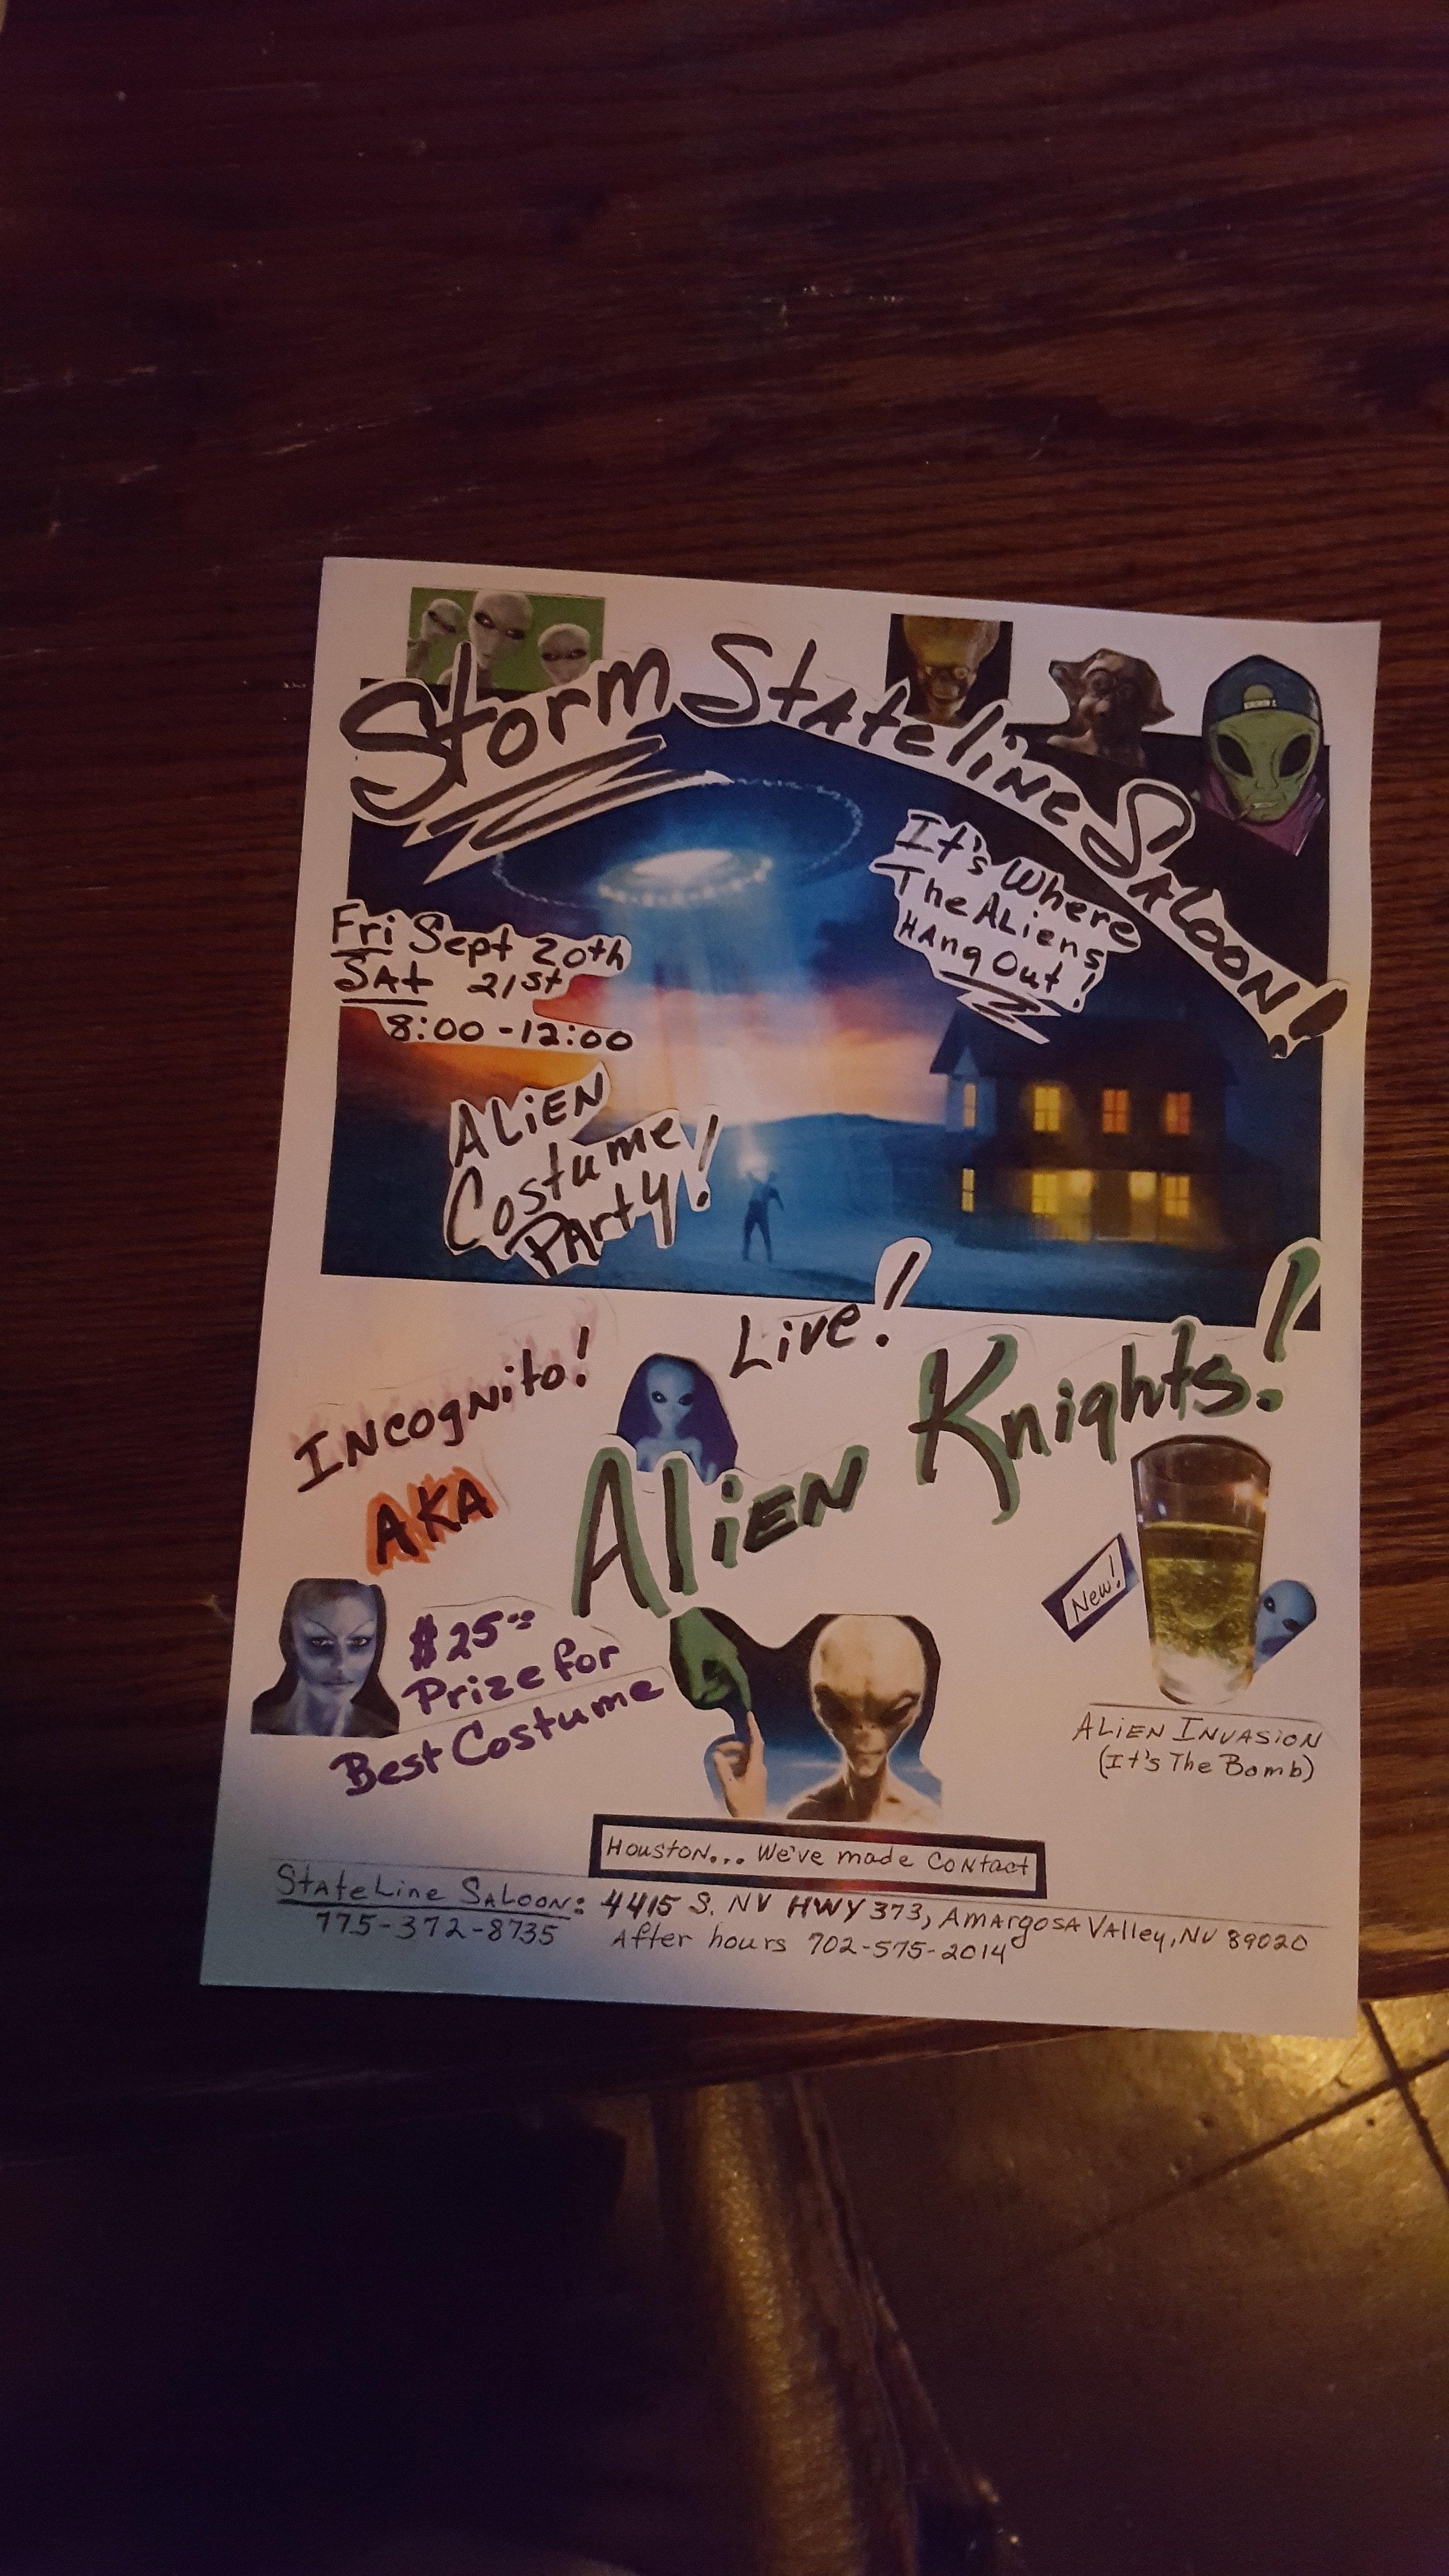 Storm Stateline Saloon!
It's Where
The Aliens
Hang Out!
Fri Sept 20th
Sat 21st
8:00-12:00
Alien
Costume
Party!
Live!
Incognito!
AKA
Alien Knights!
$25.00
Prize for
Best Costume
New!
Alien Invasion
(It's The Bomb)
Houston... We've made Contact
StateLine Saloon: 4415 S. NV HWY 373, Amargosa Valley, NV 89020
775-372-8735 After hours 702-575-2014